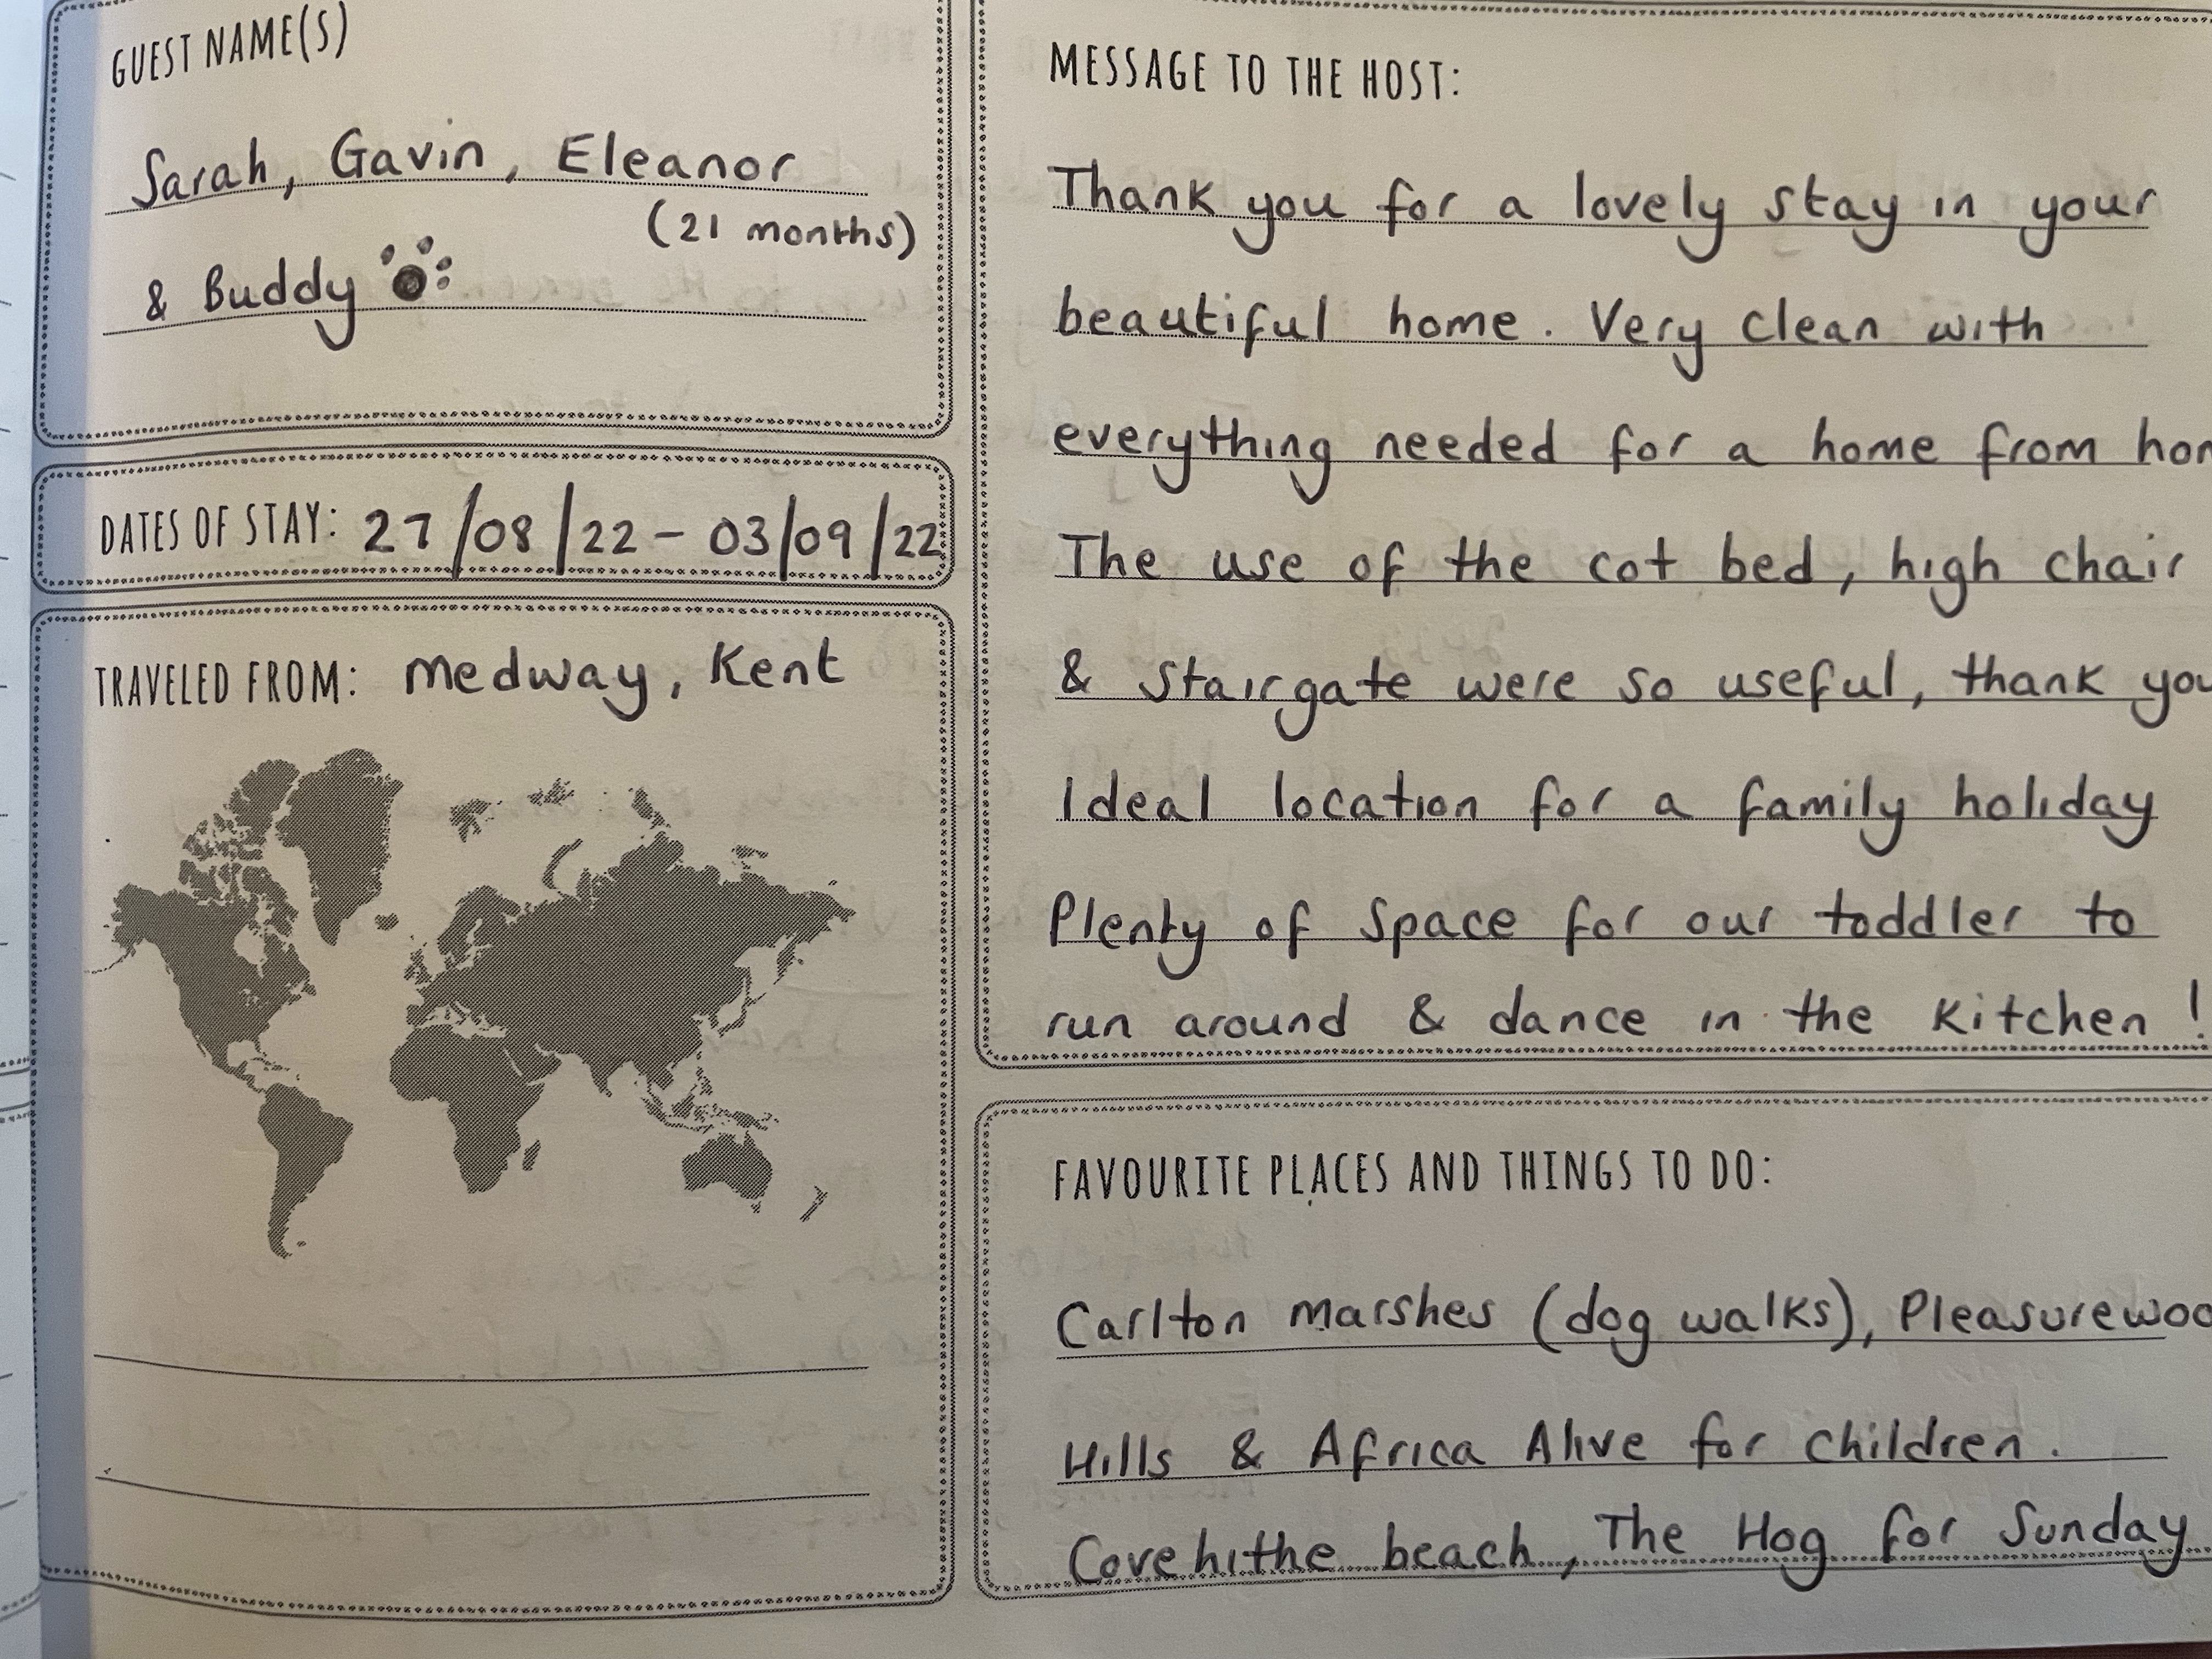 GUEST NAME(S)
Sarah, Gavin, Eleanor
(21 months)
& Buddy
DATES OF STAY: 27/08/22 - 03/09/22
TRAVELED FROM: Medway, Kent
MESSAGE TO THE HOST:
Thank you for a lovely stay in your
beautiful home. Very clean with
everything needed for a home from hom
The use of the cot bed, high chair
& stairgate were so useful, thank you
Ideal location for a family holiday
Plenty of space for our toddler to
run around & dance in the kitchen!
FAVOURITE PLACES AND THINGS TO DO:
Carlton marshes (dog walks), Pleasurewoo
Hills & Africa Alive for children.
Covehithe beach, The Hog for Sunday